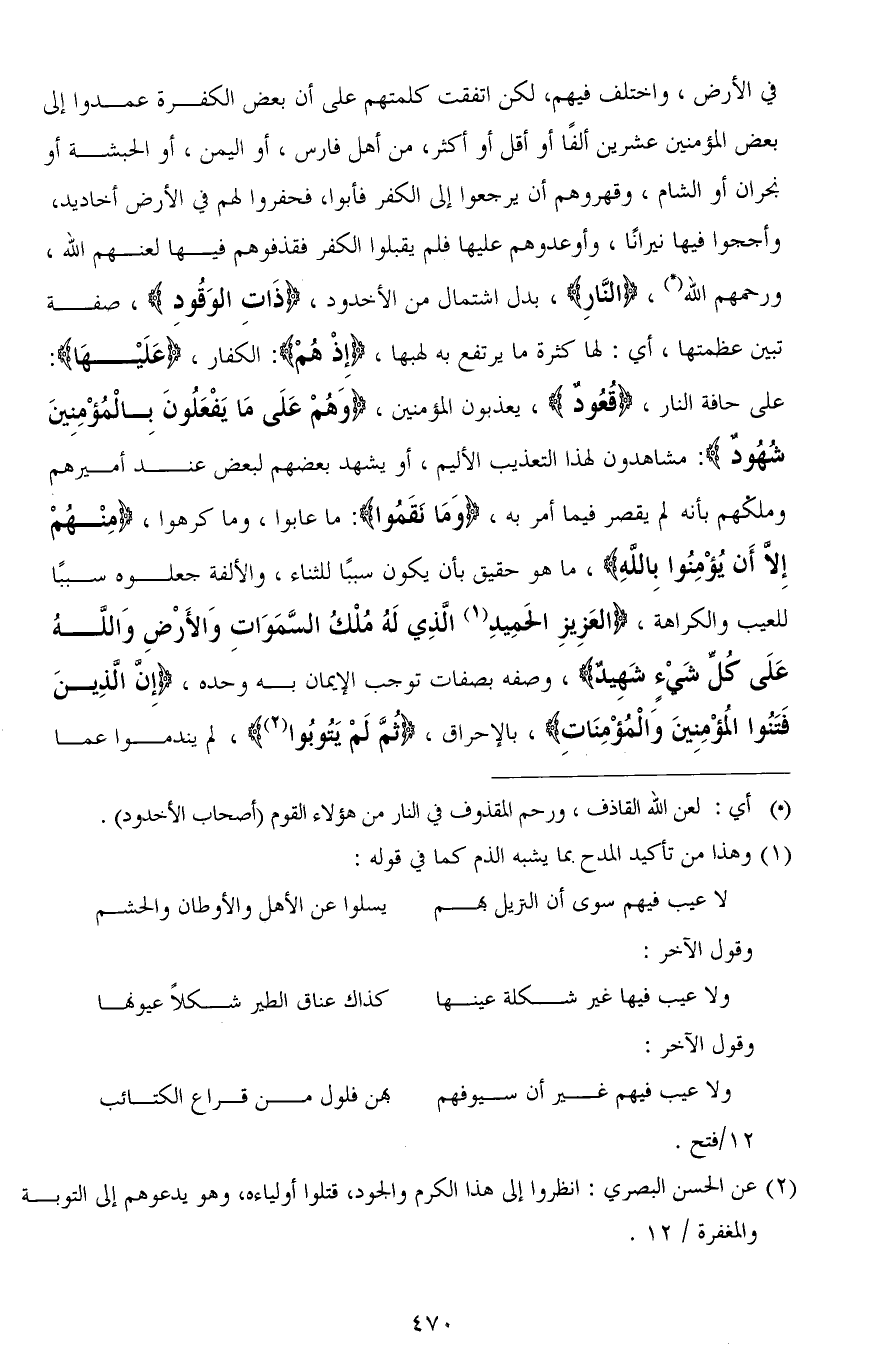 في الأرض ، واختلف فيهم، لكن اتفقت كلمتهم على أن بعض الكفرة عمدوا إلى
بعض المؤمنين عشرين ألفًا أو أقل أو أكثر، من أهل فارس ، أو اليمن ، أو الحبشة أو
نجران أو الشام ، وقهروهم أن يرجعوا إلى الكفر فأبوا، فحفروا لهم في الأرض أخاديد،
وأججوا فيها نيرانًا ، وأوعدوهم عليها فلم يقبلوا الكفر فقذفوهم فيها لعنهم الله ،
ورحمهم الله(*) ، ﴿النَّارِ﴾ ، بدل اشتمال من الأخدود ، ﴿ذَاتِ الوَقُودِ﴾ ، صفة
تبين عظمتها ، أي : لها كثرة ما يرتفع به لهبها ، ﴿إِذْ هُمْ﴾: الكفار ، ﴿عَلَيْهَا﴾:
على حافة النار ، ﴿قُعُودٌ﴾ ، يعذبون المؤمنين ، ﴿وَهُمْ عَلَى مَا يَفْعَلُونَ بِالْمُؤْمِنِينَ
شُهُودٌ﴾: مشاهدون لهذا التعذيب الأليم ، أو يشهد بعضهم لبعض عند أميرهم
وملكهم بأنه لم يقصر فيما أمر به ، ﴿وَمَا نَقَمُوا﴾: ما عابوا ، وما كرهوا ، ﴿مِنْهُمْ
إِلاَّ أَن يُؤْمِنُوا بِاللَّهِ﴾ ، ما هو حقيق بأن يكون سببًا للثناء ، والألفة جعلوه سببًا
للعيب والكراهة ، ﴿العَزِيزِ الحَمِيدِ(١) الَّذِي لَهُ مُلْكُ السَّمَوَاتِ وَالأَرْضِ وَاللَّهُ
عَلَى كُلِّ شَيْءٍ شَهِيدٌ﴾ ، وصفه بصفات توجب الإيمان به وحده ، ﴿إِنَّ الَّذِينَ
فَتَنُوا المُؤْمِنِينَ وَالْمُؤْمِنَاتِ﴾ ، بالإحراق ، ﴿ثُمَّ لَمْ يَتُوبُوا(٢)﴾ ، لم يندموا عما
(*) أي : لعن الله القاذف ، ورحم المقذوف في النار من هؤلاء القوم (أصحاب الأخدود) .
(١) وهذا من تأكيد المدح بما يشبه الذم كما في قوله :
لا عيب فيهم سوى أن النزيل بهم يسلوا عن الأهل والأوطان والحشم
وقول الآخر :
ولا عيب فيها غير شكلة عينها كذاك عناق الطير شكلاً عيونها
وقول الآخر :
ولا عيب فيهم غير أن سيوفهم بهن فلول من قراع الكتائب
١٢/فتح .
(٢) عن الحسن البصري : انظروا إلى هذا الكرم والجود، قتلوا أولياءه، وهو يدعوهم إلى التوبة
والمغفرة / ١٢ .
٤٧٠